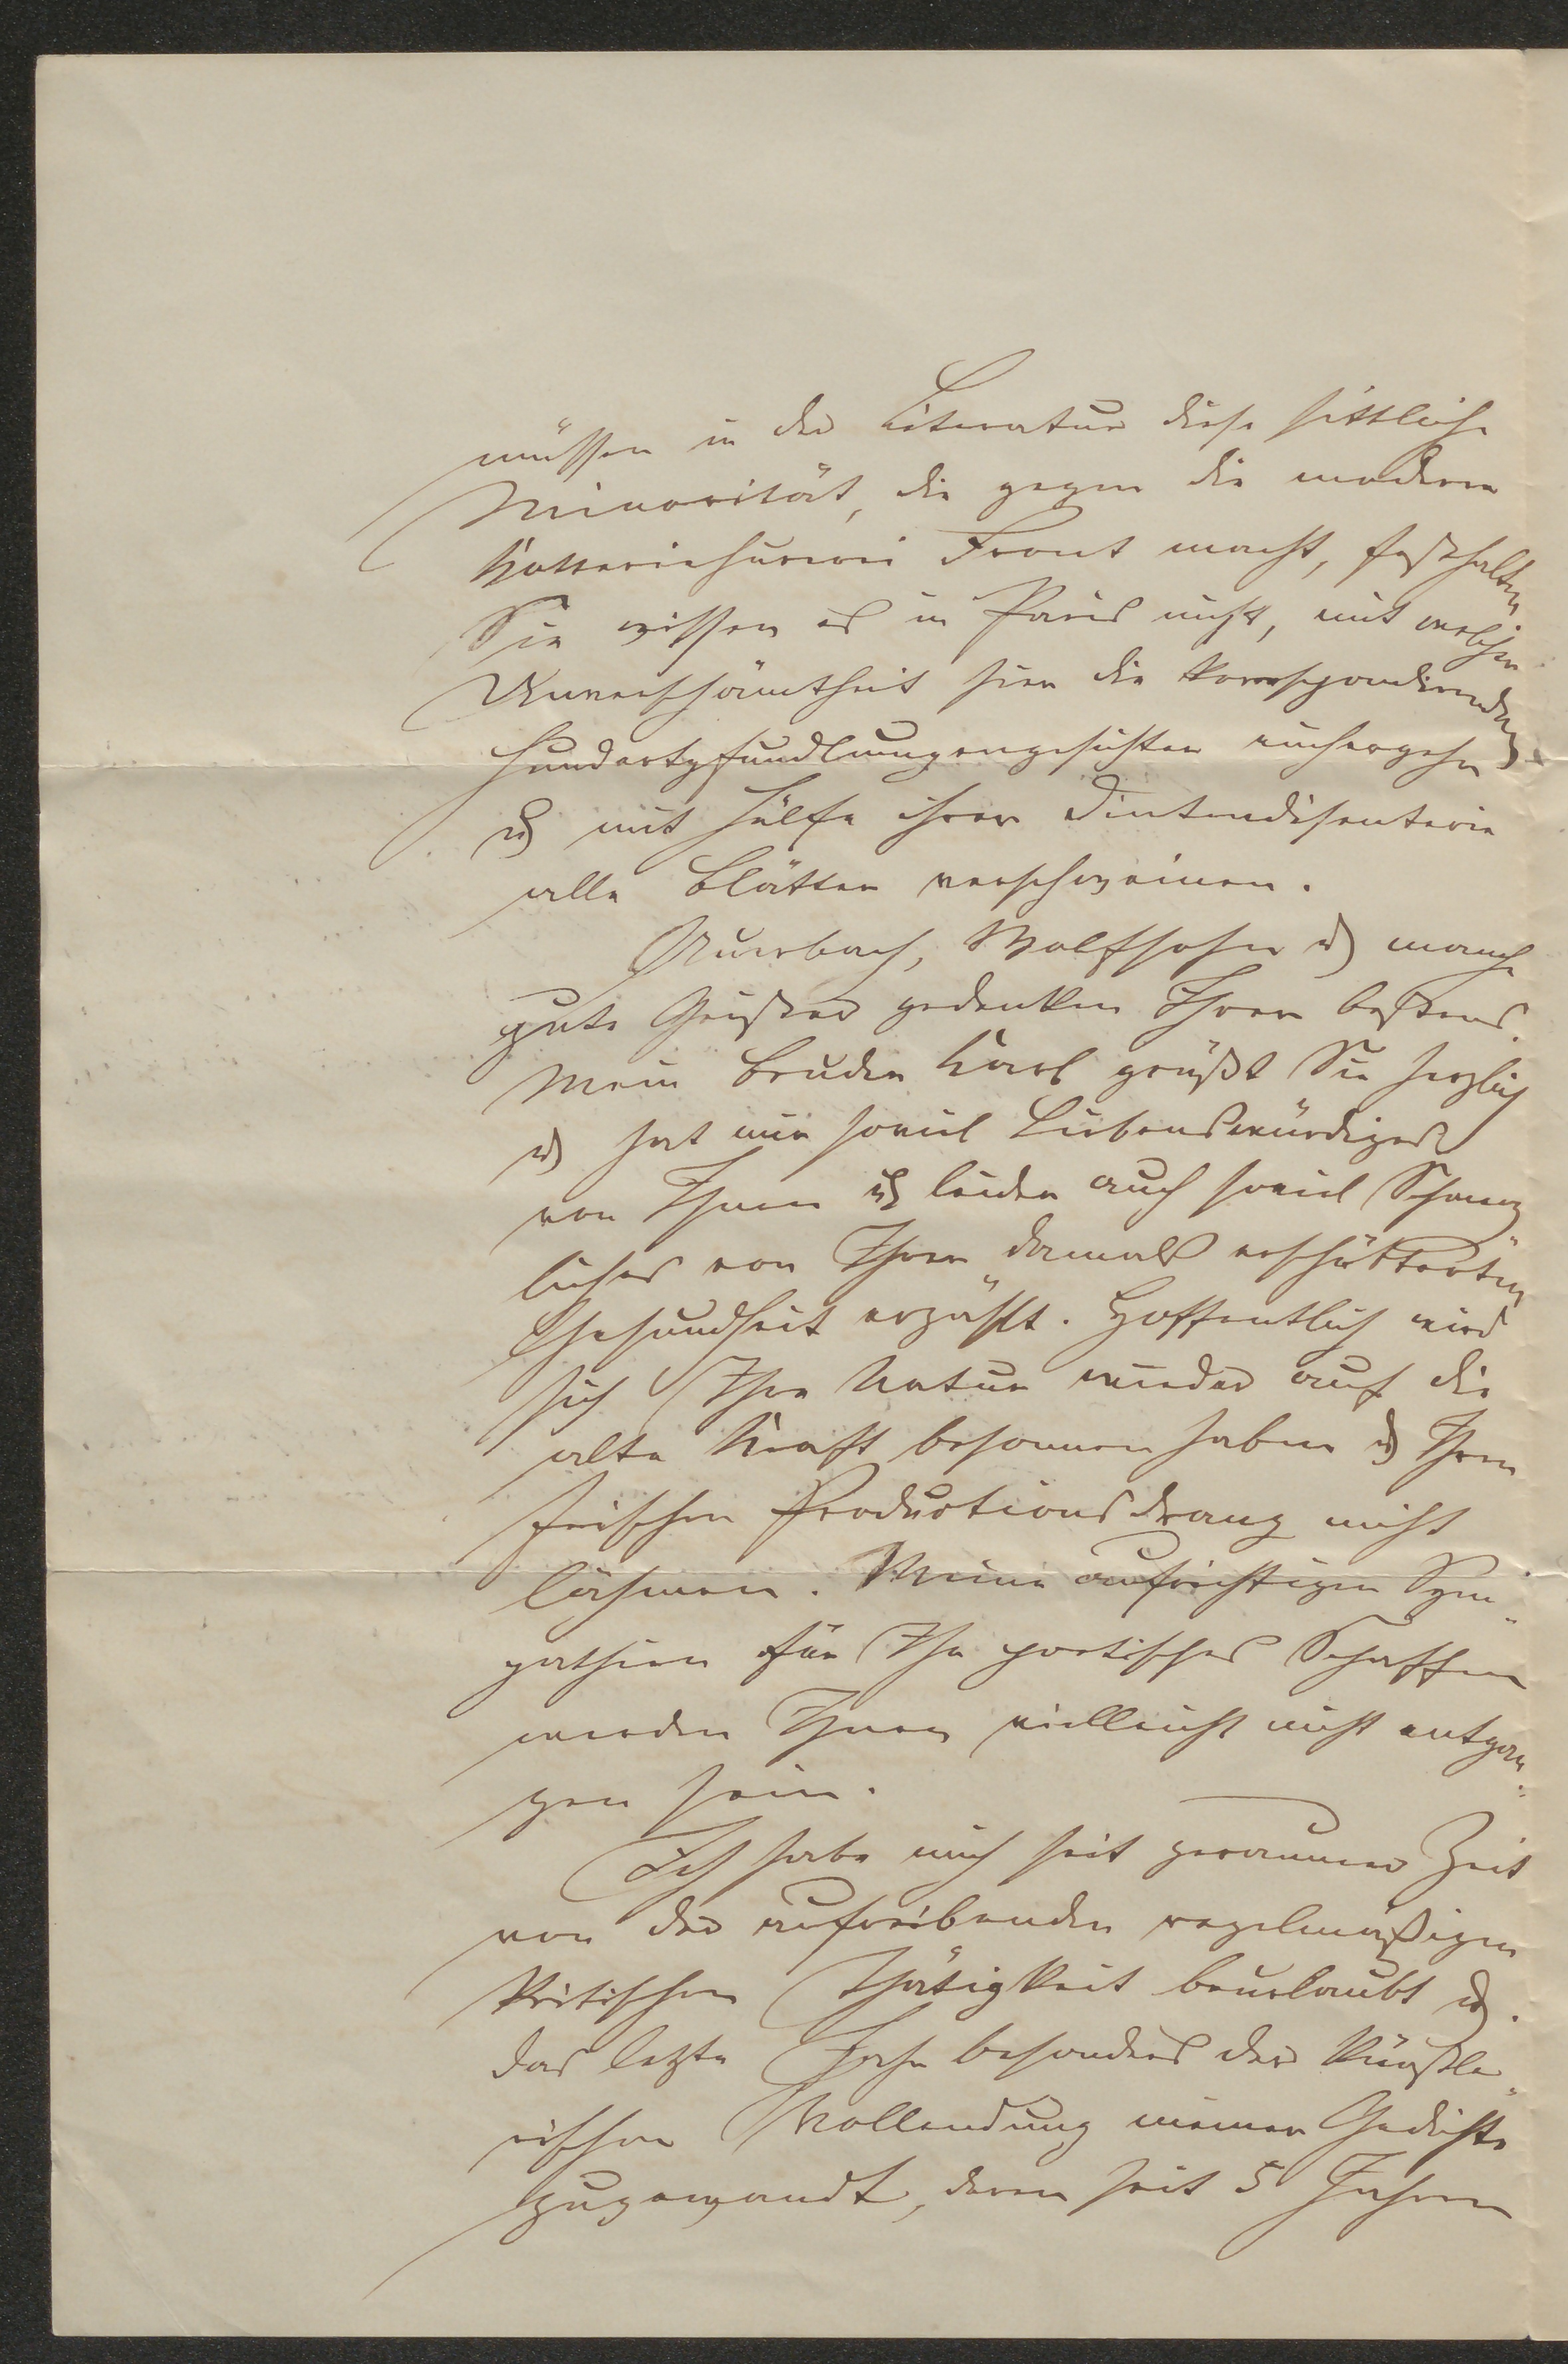 müssen in der Literatur diese sittliche
Minorität, die gegen die moderne
Front macht, festhalten
Sie wissen es in Paris nicht, mit welcher
Unverschämtheit hier die korrespondirenden
einhergehn
u mit Hülfe ihrer Dintendisenterie
alle Blätter verschweinen.
Auerbach, Wolfsohn u manche
gute Geister gedenken Ihrer bestens.
Mein Bruder Karl grüßt Sie herzlich
u hat mir soviel Liebenswürdiges
von Ihnen u leider auch soviel Schmerz
liches von Ihrer damals erschütterten
Gesundheit erzählt. Hoffentlich wird
sich Ihre Natur wieder auf die
alte Kraft besonnen haben u Ihren
frischen Productionsdrang nicht
lähmen. Meine aufrichtigen Sym„
pathien für Ihr poetisches Schaffen
werden Ihnen vielleicht nicht entgan„
gen sein.
Ich habe mich seit geraumer Zeit
von der aufreibenden regelmäßigen
kritischen Thätigkeit beurlaubt u.
das letzte Jahr besonders der künstle„
rischen Vollendung meiner Gedichte
zugewandt, deren seit 5 Jahren